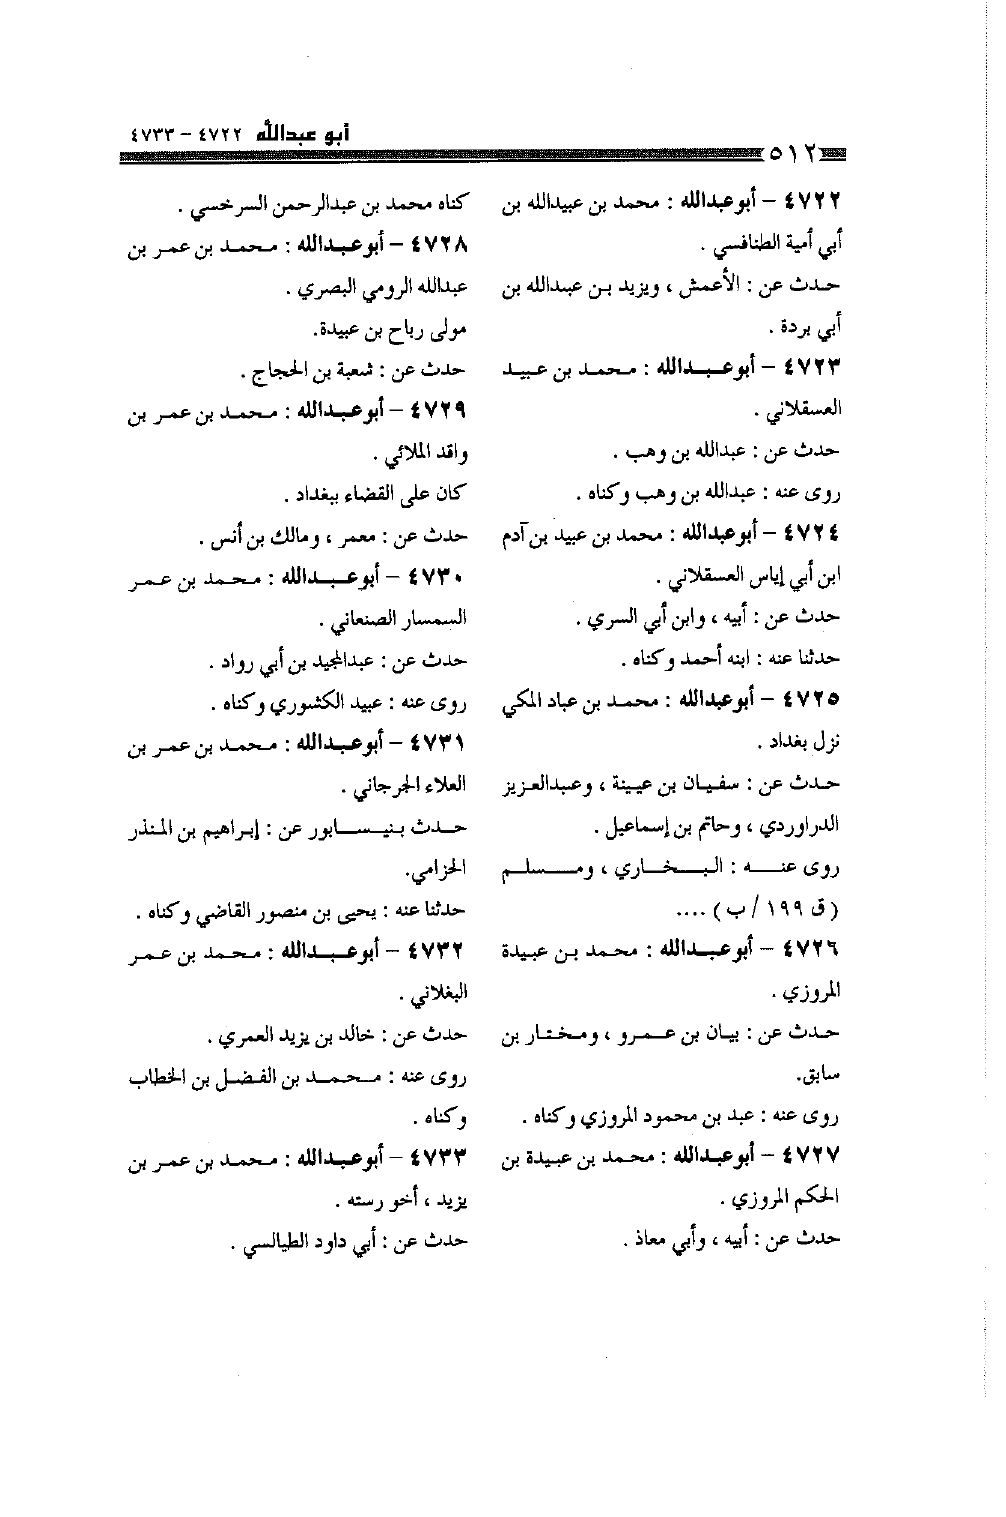 أبو عبدالله ٤٧٢٢ - ٤٧٣٣
٥١٢
٤٧٢٢ - أبو عبدالله : محمد بن عبيدالله بن
أبي أمية الطنافسي .
حدث عن : الأعمش ، ويزيد بن عبدالله بن
أبي بردة .
٤٧٢٣ - أبو عبدالله : محمد بن عبيد
العسقلاني .
حدث عن : عبدالله بن وهب .
روى عنه : عبدالله بن وهب وكناه .
٤٧٢٤ - أبو عبدالله : محمد بن عبيد بن آدم
ابن أبي إياس العسقلاني .
حدث عن : أبيه ، وابن أبي السري .
حدثنا عنه : ابنه أحمد وكناه .
٤٧٢٥ - أبو عبدالله : محمد بن عباد المكي
نزل بغداد .
حدث عن : سفيان بن عيينة ، وعبدالعزيز
الدراوردي ، وحاتم بن إسماعيل .
روى عنه : البخاري ، ومسلم
(ق ١٩٩ / ب) ....
٤٧٢٦ - أبو عبدالله : محمد بن عبيدة
المروزي .
حدث عن : بيان بن عمرو ، ومختار بن
سابق.
روى عنه : عبد بن محمود المروزي وكناه .
٤٧٢٧ - أبو عبدالله : محمد بن عبيدة بن
الحكم المروزي .
حدث عن : أبيه ، وأبي معاذ .
كناه محمد بن عبدالرحمن السرخسي .
٤٧٢٨ - أبو عبدالله : محمد بن عمر بن
عبدالله الرومي البصري .
مولى رباح بن عبيدة.
حدث عن : شعبة بن الحجاج .
٤٧٢٩ - أبو عبدالله : محمد بن عمر بن
واقد الملائي .
كان على القضاء ببغداد .
حدث عن : معمر ، ومالك بن أنس .
٤٧٣٠ - أبو عبدالله : محمد بن عمر
السمسار الصنعاني .
حدث عن : عبدالمجيد بن أبي رواد .
روى عنه : عبيد الكشوري وكناه .
٤٧٣١ - أبو عبدالله : محمد بن عمر بن
العلاء الجرجاني .
حدث بنيسابور عن : إبراهيم بن المنذر
الحزامي.
حدثنا عنه : يحيى بن منصور القاضي وكناه .
٤٧٣٢ - أبو عبدالله : محمد بن عمر
البغلاني .
حدث عن : خالد بن يزيد العمري .
روى عنه : محمد بن الفضل بن الخطاب
وكناه .
٤٧٣٣ - أبو عبدالله : محمد بن عمر بن
يزيد ، أخو رسته .
حدث عن : أبي داود الطيالسي .